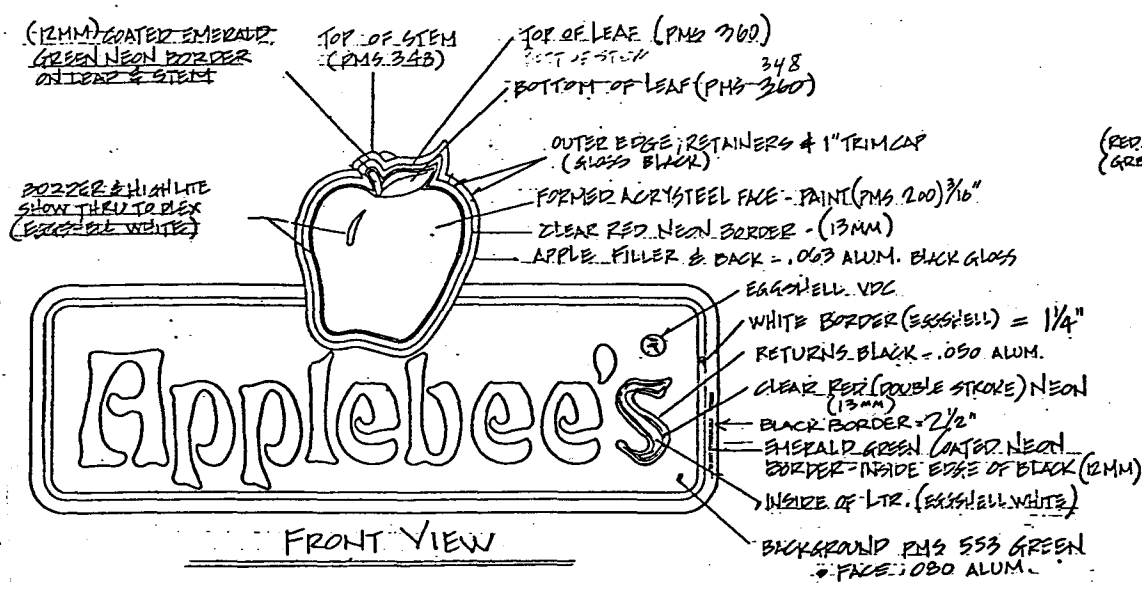 (12MM) COATED EMERALD
GREEN NEON BORDER
ON LEAF & STEM
TOP OF STEM
(PMS 348)
TOP OF LEAF (PMS 360)
348
BOTTOM OF LEAF (PMS 360)
OUTER EDGE, RETAINERS & 1" TRIMCAP
(GLOSS BLACK)
(RED
(GRE
BORDER & HIGHLITE
SHOW THRU TO PLEX
(EGGSHELL WHITE)
FORMED ACRYSTEEL FACE - PAINT (PMS 200) 3/16"
CLEAR RED NEON BORDER - (13MM)
APPLE FILLER & BACK = .063 ALUM. BLACK GLOSS
EGGSHELL VDC
WHITE BORDER (EGGSHELL) = 1 1/4"
RETURNS BLACK - .050 ALUM.
CLEAR RED (DOUBLE STROKE) NEON
(13MM)
BLACK BORDER = 2 1/2"
EMERALD GREEN COATED NEON
BORDER - INSIDE EDGE OF BLACK (12MM)
INSIDE OF LTR. (EGGSHELL WHITE)
BACKGROUND PMS 553 GREEN
FACE .080 ALUM.
Applebee's
R
FRONT VIEW